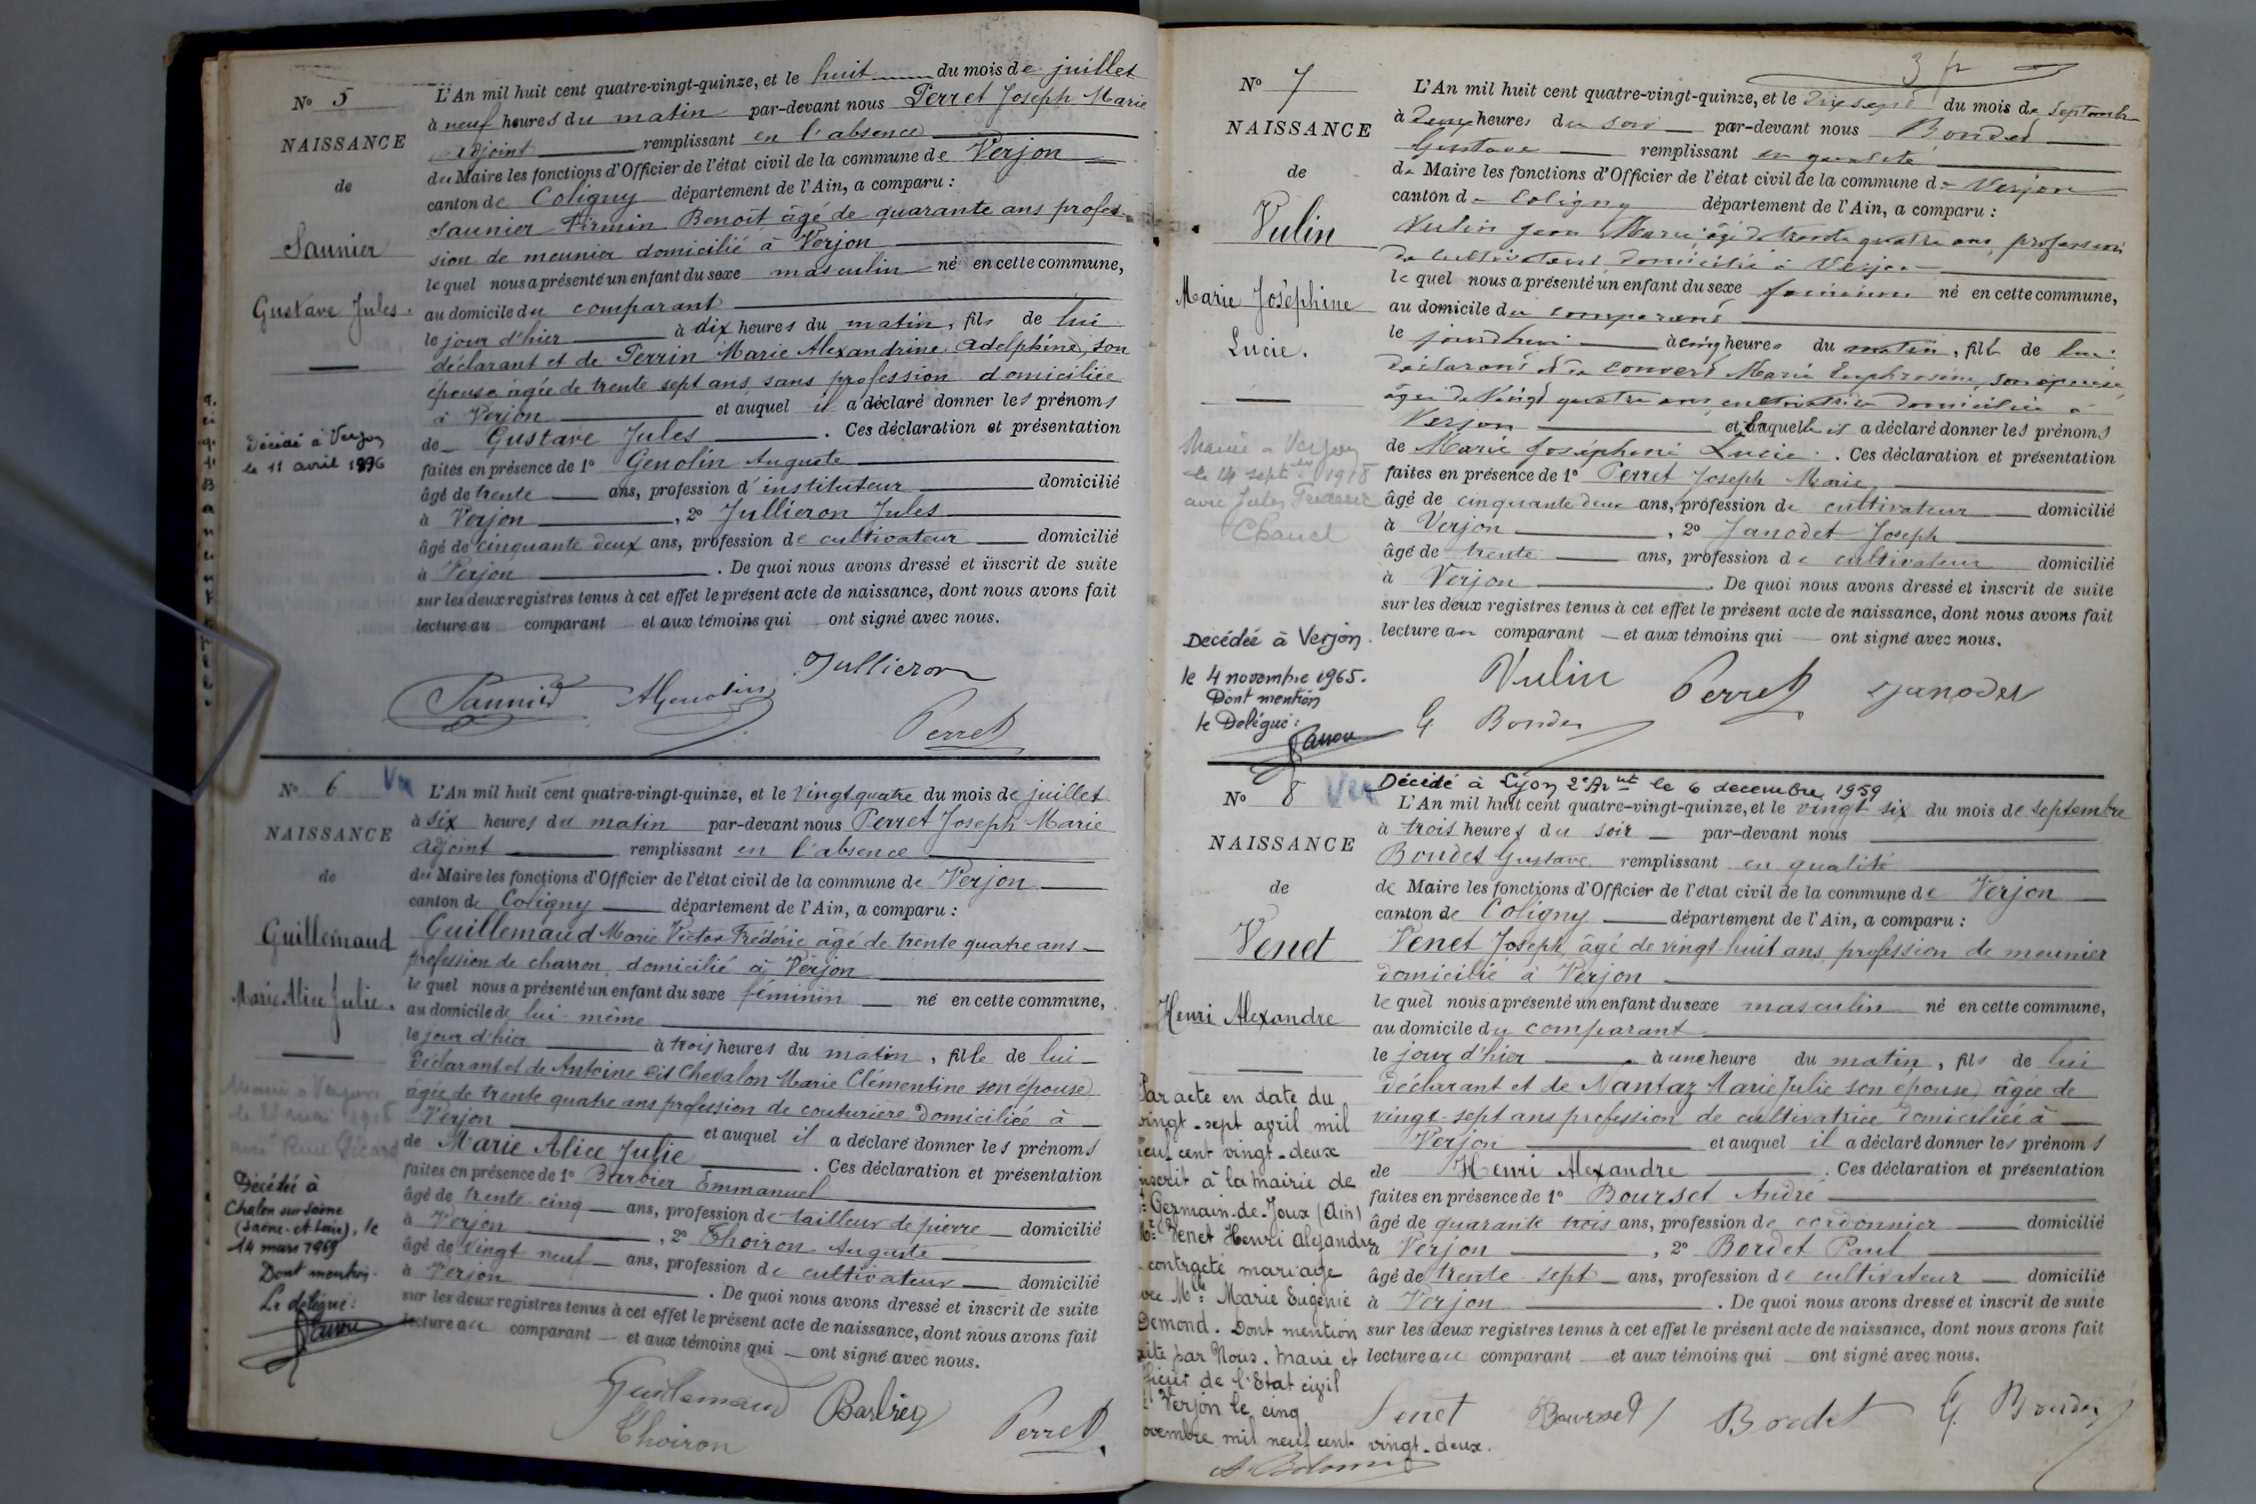 N° 5
NAISSANCE
de
Saunier
Gustave Jules.
Décédé à Verjon
le 11 avril 1896
L'An mil huit cent quatre-vingt-quinze, et le huit du mois de juillet
à neuf heures du matin par-devant nous Perret Joseph Marie
adjoint remplissant en l'absence
du Maire les fonctions d'Officier de l'état civil de la commune de Verjon
canton de Coligny département de l'Ain, a comparu :
Saunier Firmin Benoît âgé de quarante ans profes-
sion de meunier domicilié à Verjon
lequel nous a présenté un enfant du sexe masculin né en cette commune,
au domicile du comparant
le jour d'hier à dix heures du matin, fils de lui
déclarant et de Perrin Marie Alexandrine Adelphine, son
épouse âgée de trente sept ans sans profession domiciliée
à Verjon et auquel il a déclaré donner les prénoms
de Gustave Jules. Ces déclaration et présentation
faites en présence de 1° Genolin Auguste
âgé de trente ans, profession d'instituteur domicilié
à Verjon, 2° Jullieron Jules
âgé de cinquante deux ans, profession de cultivateur domicilié
à Verjon. De quoi nous avons dressé et inscrit de suite
sur les deux registres tenus à cet effet le présent acte de naissance, dont nous avons fait
lecture au comparant et aux témoins qui ont signé avec nous.
Saunier AGenolin Jullieron
Perret
N° 6 Vu
NAISSANCE
de
Guillemaud
Marie Alice Julie.
Décédée à
Chalon sur Saône
(Saône-et-Loire), le
14 mars 1969
Dont mention.
Le délégué :
L'An mil huit cent quatre-vingt-quinze, et le vingt quatre du mois de juillet
à six heures du matin par-devant nous Perret Joseph Marie
adjoint remplissant en l'absence
du Maire les fonctions d'Officier de l'état civil de la commune de Verjon
canton de Coligny département de l'Ain, a comparu :
Guillemaud Marie Victor Frédéric âgé de trente quatre ans
profession de charron domicilié à Verjon
lequel nous a présenté un enfant du sexe féminin né en cette commune,
au domicile de lui-même
le jour d'hier à trois heures du matin, fille de lui
déclarant et de Antoine dit Chevalon Marie Clémentine son épouse
âgée de trente quatre ans profession de couturière domiciliée à
Verjon et auquel il a déclaré donner les prénoms
de Marie Alice Julie. Ces déclaration et présentation
faites en présence de 1° Barbier Emmanuel
âgé de trente cinq ans, profession de tailleur de pierre domicilié
à Verjon, 2° Thoiron Auguste
âgé de vingt neuf ans, profession de cultivateur domicilié
à Verjon. De quoi nous avons dressé et inscrit de suite
sur les deux registres tenus à cet effet le présent acte de naissance, dont nous avons fait
lecture au comparant et aux témoins qui ont signé avec nous.
Guillemaud Barbier Perret
Thoiron
N° 7
NAISSANCE
de
Vulin
Marie Joséphine
Lucie.
Mariée à Verjon
le 14 septbre 1918
avec Jules
Chanel
Décédée à Verjon.
le 4 novembre 1965.
Dont mention
le Délégué :
L'An mil huit cent quatre-vingt-quinze, et le dix sept du mois de Septembre
à deux heures du soir par-devant nous Bondet
Gustave remplissant en qualité
de Maire les fonctions d'Officier de l'état civil de la commune de Verjon
canton de Coligny département de l'Ain, a comparu :
Vulin Jean Marie, âgé de trente quatre ans, profession
de cultivateur domicilié à Verjon
lequel nous a présenté un enfant du sexe féminin né en cette commune,
au domicile du comparant
le jourdhui à cinq heures du matin, fille de lui
déclarant et de Convert Marie Euphrosine, son épouse
âgée de vingt quatre ans cultivatrice domiciliée à
Verjon et laquelle il a déclaré donner les prénoms
de Marie Joséphine Lucie. Ces déclaration et présentation
faites en présence de 1° Perret Joseph Marie
âgé de cinquante deux ans, profession de cultivateur domicilié
à Verjon, 2° Janodet Joseph
âgé de trente ans, profession de cultivateur domicilié
à Verjon. De quoi nous avons dressé et inscrit de suite
sur les deux registres tenus à cet effet le présent acte de naissance, dont nous avons fait
lecture au comparant et aux témoins qui ont signé avec nous.
Vulin Perret Janodet
G Bondet
N° 8 Vu
Décédé à Lyon 2e Arnt le 6 decembre 1959
NAISSANCE
de
Venet
Henri Alexandre
Par acte en date du
vingt-sept avril mil
neuf cent vingt-deux
inscrit à la mairie de
St Germain-de-Joux (Ain)
Mr Venet Henri Alexandre
contracté mariage
avec Mlle Marie Eugénie
Demond. Dont mention
faite par Nous. Maire et
officier de l'Etat civil
Verjon le cinq
novembre mil neuf cent vingt-deux.
L'An mil huit cent quatre-vingt-quinze, et le vingt six du mois de septembre
à trois heures du soir par-devant nous
Bondet Gustave remplissant en qualité
de Maire les fonctions d'Officier de l'état civil de la commune de Verjon
canton de Coligny département de l'Ain, a comparu :
Venet Joseph, âgé de vingt huit ans profession de meunier
domicilié à Verjon
lequel nous a présenté un enfant du sexe masculin né en cette commune,
au domicile du comparant
le jour d'hier à une heure du matin, fils de lui
déclarant et de Nantaz Marie Julie son épouse âgée de
vingt-sept ans profession de cultivatrice domiciliée à
Verjon et auquel il a déclaré donner les prénoms
de Henri Alexandre. Ces déclaration et présentation
faites en présence de 1° Bourset André
âgé de quarante trois ans, profession de cordonnier domicilié
à Verjon, 2° Bordet Paul
âgé de trente sept ans, profession de cultivateur domicilié
à Verjon. De quoi nous avons dressé et inscrit de suite
sur les deux registres tenus à cet effet le présent acte de naissance, dont nous avons fait
lecture au comparant et aux témoins qui ont signé avec nous.
Venet Bourset Bordet G. Bondet